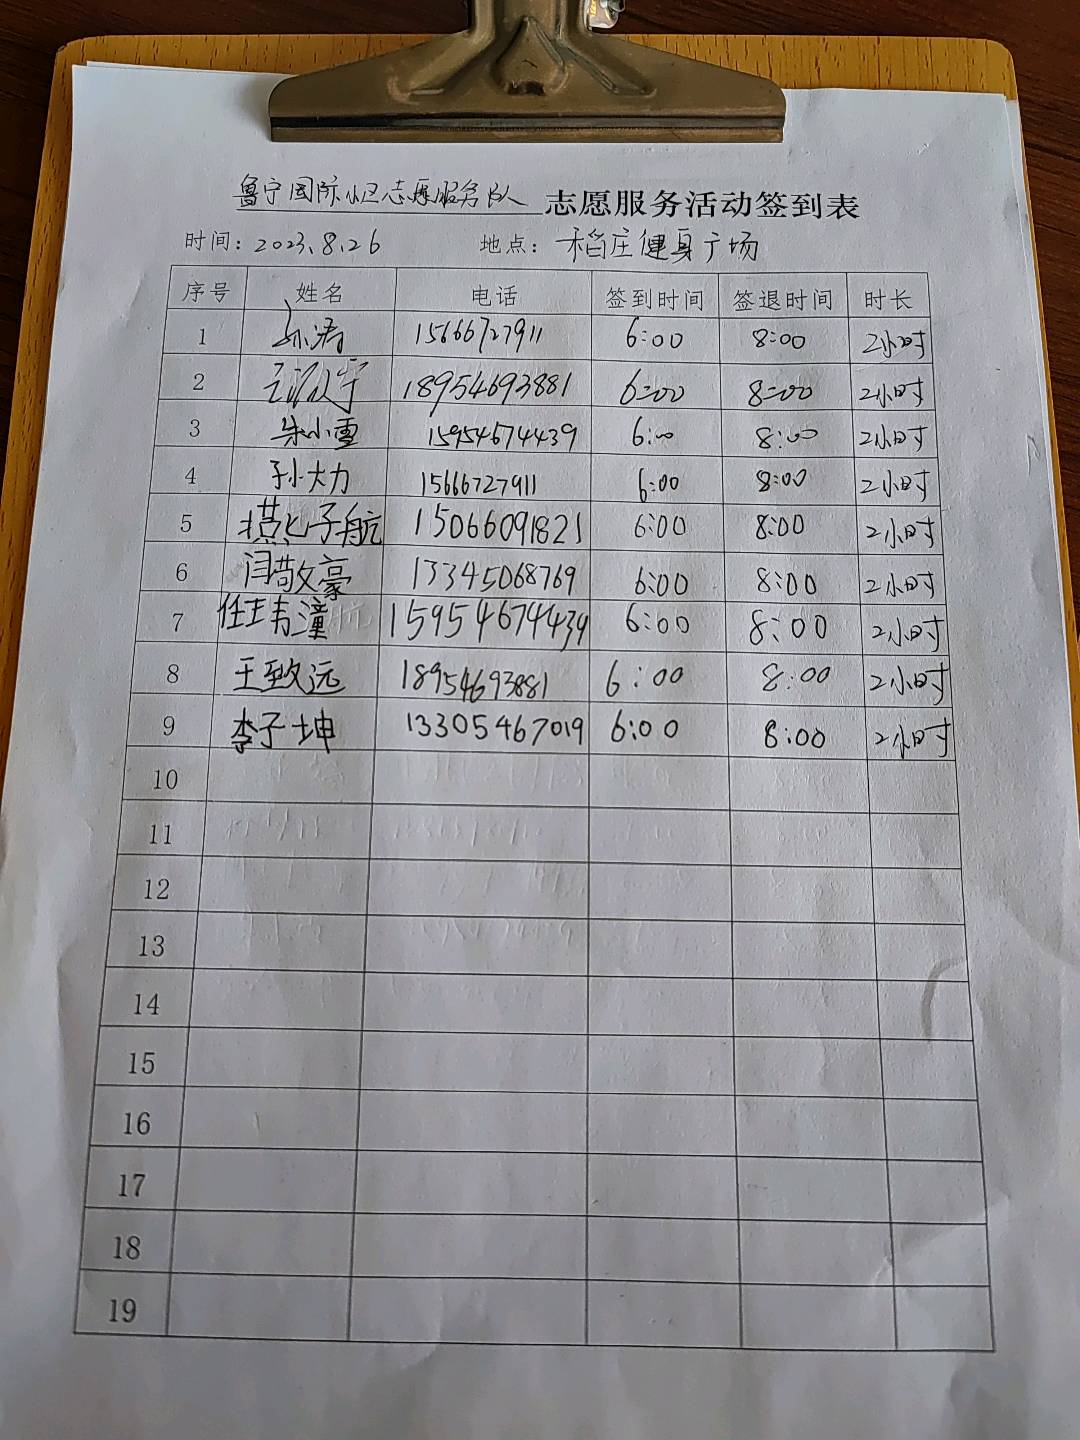 鲁宁国际小区志愿服务队 志愿服务活动签到表
时间: 2023.8.26 地点: 稻庄健身广场
序号 姓名 电话 签到时间 签退时间 时长
1 孙涛 15666727911 6:00 8:00 2小时
2 18954693881 6:00 8:00 2小时
3 朱小雪 15954674439 6:00 8:00 2小时
4 孙大力 15666727911 6:00 8:00 2小时
5 燕子航 15066091821 6:00 8:00 2小时
6 闫敬豪 13345068769 6:00 8:00 2小时
7 任玮潼 15954674439 6:00 8:00 2小时
8 王致远 18954693881 6:00 8:00 2小时
9 李子坤 13305467019 6:00 8:00 2小时
10
11
12
13
14
15
16
17
18
19